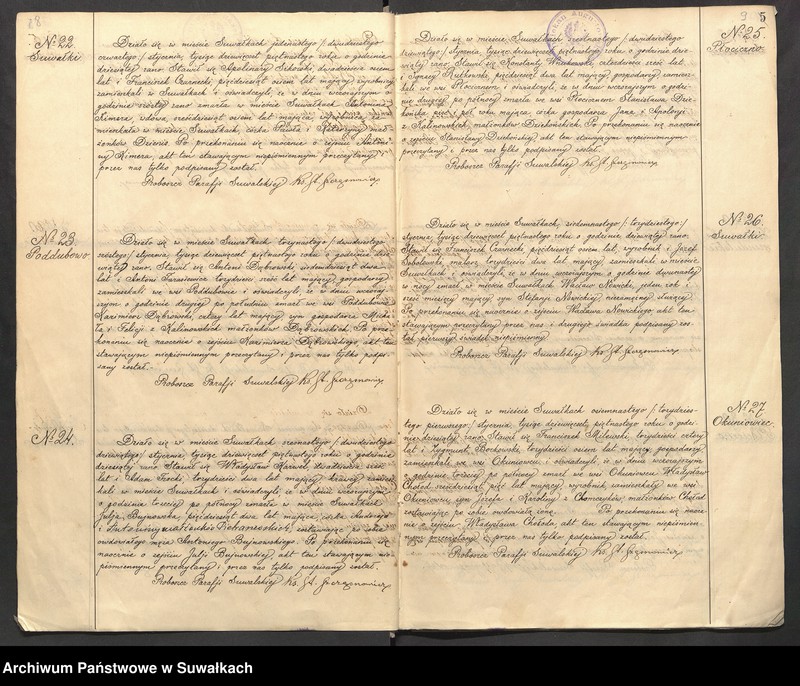 28
№ 22
Suwałki
Działo się w mieście Suwałkach jedenastego / dwudziestego
czwartego / stycznia, tysiąc dziewięćset piętnastego roku, o godzinie
dziesiątej rano. Stawił się
i Franciszek Czarnecki, pięćdziesiąt osiem lat mający, wyrobnicy
zamieszkali w Suwałkach i oświadczyli, że w dniu wczorajszym o
godzinie szóstej rano zmarła w mieście Suwałkach
Kimera, wdowa, sześćdziesiąt osiem lat mająca, wyrobnica za-
mieszkała w mieście Suwałki, córka Pawła i Katarzyny mał-
żonków Po przekonaniu się naocznie o zejściu
Kimera, akt ten stawającym niepiśmiennym przeczytany
przez nas tylko podpisany został.
Proboszcz Parafji Suwalskiej Ks. St.
№ 23.
Poddubowo
Działo się w mieście Suwałkach trzynastego / dwudziestego
szóstego / stycznia, tysiąc dziewięćset piętnastego roku o godzinie dzie-
siątej rano. Stawił się Antoni Dąbrowski siedemdziesiąt dwa
lat i Antoni czterdzieści sześć lat mający, gospodarze
zamieszkali we wsi Poddubowie i oświadczyli, że w dniu wczoraj-
szym o godzinie drugiej po południu zmarł we wsi Poddubowie
Kazimierz Dąbrowski, cztery lat mający, syn gospodarza Micha-
ła i Felicji z Kalinowskich małżonków Dąbrowskich. Po prze-
konaniu się naocznie o zejściu Kazimierza Dąbrowskiego, akt ten
stawającym niepiśmiennym przeczytany i przez nas tylko podpi-
sany został.
Proboszcz Parafji Suwalskiej Ks. St.
№ 24.
Działo się w mieście Suwałkach szesnastego / dwudziestego
dziewiątego / stycznia, tysiąc dziewięćset piętnastego roku o godzinie
dziesiątej rano. Stawił się Władysław dwadzieścia sześć
lat i Adam czterdzieści dwa lat mający, krawcy zamiesz-
kali w mieście Suwałkach i oświadczyli, że w dniu wczorajszym
o godzinie trzeciej po północy zmarła w mieście Suwałkach
Julja Bujnowska, pięćdziesiąt dwa lat mająca, córka Andrzeja
i Antoniny małżonków zostawiając po sobie
owdowiałego męża Antoniego Bujnowskiego. Po przekonaniu się
naocznie o zejściu Julji Bujnowskiej akt ten stawającym nie-
piśmiennym przeczytany i przez nas tylko podpisany został.
Proboszcz Parafji Suwalskiej Ks. St.
9 5
№ 25.
Płociczno
Działo się w mieście Suwałkach szesnastego / dwudziestego
dziewiątego / stycznia, tysiąc dziewięćset piętnastego roku o godzinie dzie-
siątej rano. Stawił się Konstanty czterdzieści sześć lat,
i Ignacy Rutkowski, pięćdziesiąt dwa lat mający, gospodarze zamiesz-
kali we wsi Płocicznie, i oświadczyli, że w dniu wczorajszym o godzi-
nie drugiej po północy zmarła we wsi Płocicznie Stanisława
pięć i pół roku mająca córka gospodarza Jana i Apolonji
z Kalinowskich małżonków Po przekonaniu się naocznie
o zejściu Stanisławy akt ten stawającym niepiśmiennym
przeczytany i przez nas tylko podpisany został.
Proboszcz Parafji Suwalskiej Ks. St.
№ 26.
Suwałki
Działo się w mieście Suwałkach, siedemnastego / trzydziestego /
stycznia, tysiąc dziewięćset piętnastego roku o godzinie dziewiątej rano.
Stawił się Franciszek Czarnecki, pięćdziesiąt osiem lat, wyrobnik i Józef
Sobolewski, malarz, trzydzieści dwa lat mający zamieszkali w mieście
Suwałkach i oświadczyli, że w dniu wczorajszym o godzinie dwunastej
w nocy zmarł w mieście Suwałkach Wacław Nowicki, jeden rok i
sześć miesięcy mający, syn Stefanji Nowickiej, niezamężnej służącej.
Po przekonaniu się naocznie o zejściu Wacława Nowickiego akt ten
stawającym przeczytany przez nas i drugiego świadka podpisany zos-
tał, pierwszy świadek niepiśmienny.
Proboszcz Parafji Suwalskiej Ks. St.
№ 27.
Okuniowiec.
Działo się w mieście Suwałkach osiemnastego / trzydzies-
tego pierwszego / stycznia, tysiąc dziewięćset piętnastego roku o godzi-
nie dziesiątej rano. Stawił się Franciszek Milewski, czterdzieści cztery
lat i Zygmunt czterdzieści osiem lat mający, gospodarze
zamieszkali we wsi Okuniowcu, i oświadczyli, że w dniu wczorajszym
o godzinie trzeciej po północy zmarł we wsi Okuniowcu Władysław
Chołod, sześćdziesiąt pięć lat mający, wyrobnik zamieszkały we wsi
Okuniowcu, syn Józefa i Karoliny z małżonków Chołod
zostawiając po sobie owdowiałą żonę. Po przekonaniu się naocz-
nie o zejściu Władysława Chołoda akt ten stawającym niepiśmien-
nym przeczytany i przez nas tylko podpisany został.
Proboszcz Parafji Suwalskiej Ks. St.
Archiwum Państwowe w Suwałkach